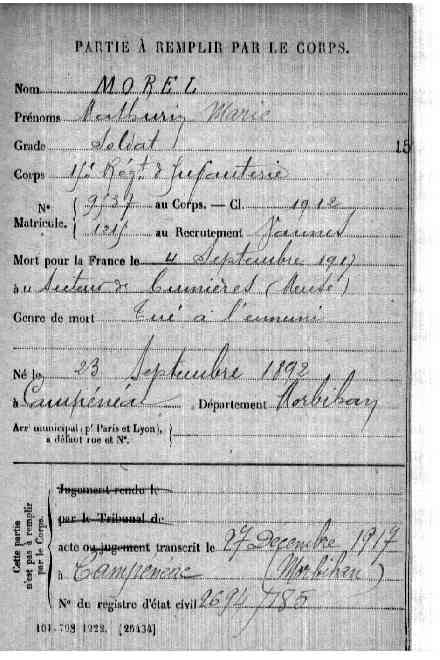 PARTIE À REMPLIR PAR LE CORPS.
Nom MOREL
Prénoms Mathurin Marie
Grade Soldat
15
Corps Régt d'Infanterie
N° Matricule. { 9137 au Corps. — Cl. 1912
au Recrutement Vannes
Mort pour la France le 4 Septembre 1917
à u Secteur de Cumières (Meuse)
Genre de mort Tué à l'ennemi
Né le 23 Septembre 1892
à Campénéac Département Morbihan
Arr^t municipal (p^r Paris et Lyon), à défaut rue et N°.
Cette partie n'est pas à remplir par le Corps.
Jugement rendu le
par le Tribunal de
acte ou jugement transcrit le 27 Decembre 1917
à Campeneac (Morbihan)
N° du registre d'état civil 2694/185
101-708 1922. [26434]